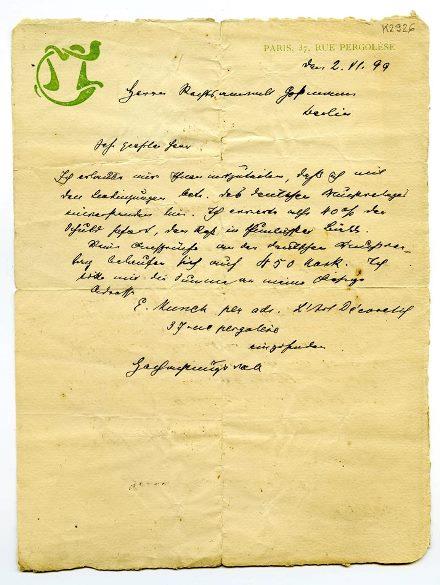 K2926
PARIS, 37, RUE PERGOLÈSE
den 2. VI. 99
Herrn Rechtsanwalt Hofmann
Berlin
Sehr geehrter Herr
Ich erlaube mir Ihnen mitzuteilen, daß ich mit
den Bedingungen betr. des deutschen
einverstanden bin. Ich erwarte also 40% der
Schuld sofort, den Rest in
Meine Ansprüche an der deutschen
belaufen sich auf 450 Mark. Ich
bitte mir die Summe an meine
Adresse
E. Munch per adr. L'Art Décoratif
37 rue pergolèse
einzusenden
Hochachtungsvoll